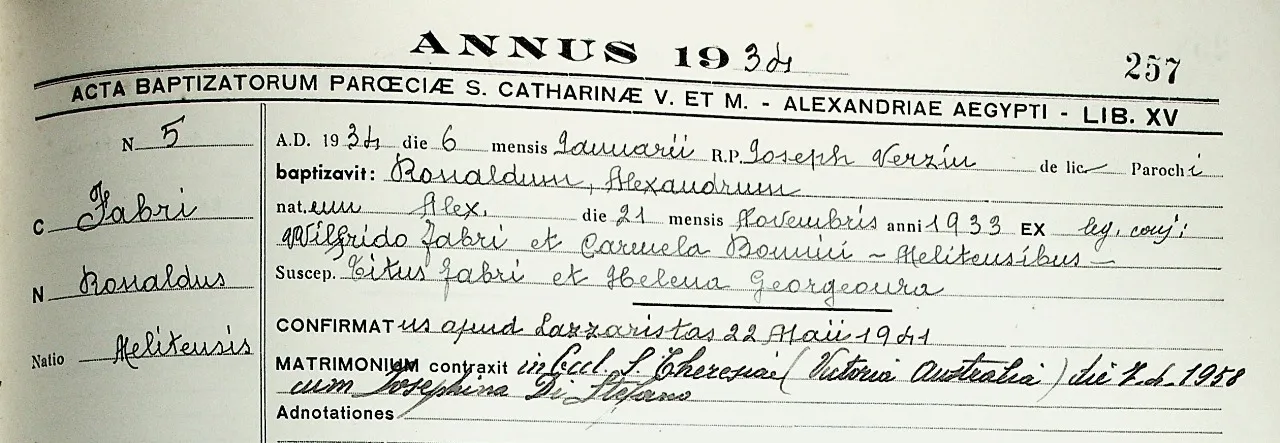 ANNUS 1934
257
ACTA BAPTIZATORUM PARŒCIÆ S. CATHARINÆ V. ET M. - ALEXANDRIAE AEGYPTI - LIB. XV
N 5
C Fabri
N Ronaldus
Natio Melitensis
A.D. 1934 die 6 mensis Januarii R.P. Joseph Verzin de lic. Parochi
baptizavit: Ronaldum, Alexandrum
nat.um Alex. die 21 mensis Novembris anni 1933 EX leg. conj:
Wilfrido Fabri et Carmela Bonnici - Melitensibus -
Suscep. Titus Fabri et Helena Georgeoura
CONFIRMATus apud Lazzaristas 22 Maii 1941
MATRIMONIUM contraxit in Eccl. S. Theresiae (Victoria Australia) die 7.4.1958
cum Josephina Di Stefano
Adnotationes